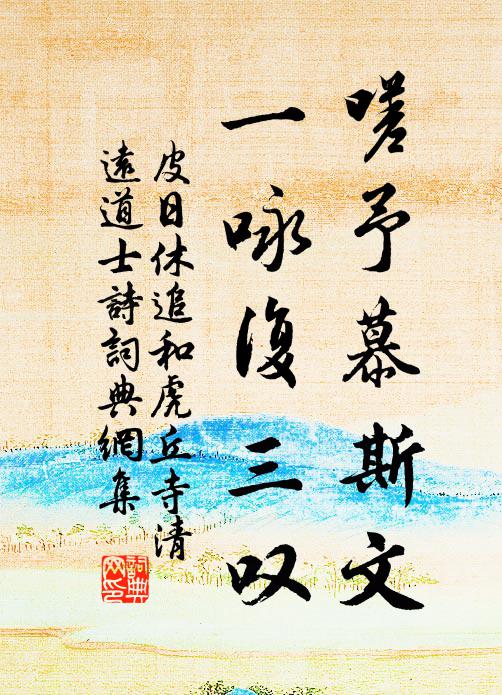 嗟予慕斯文
一咏復三叹
皮日休追和虎丘寺清
遠道士詩詞典網集
詞典
网印